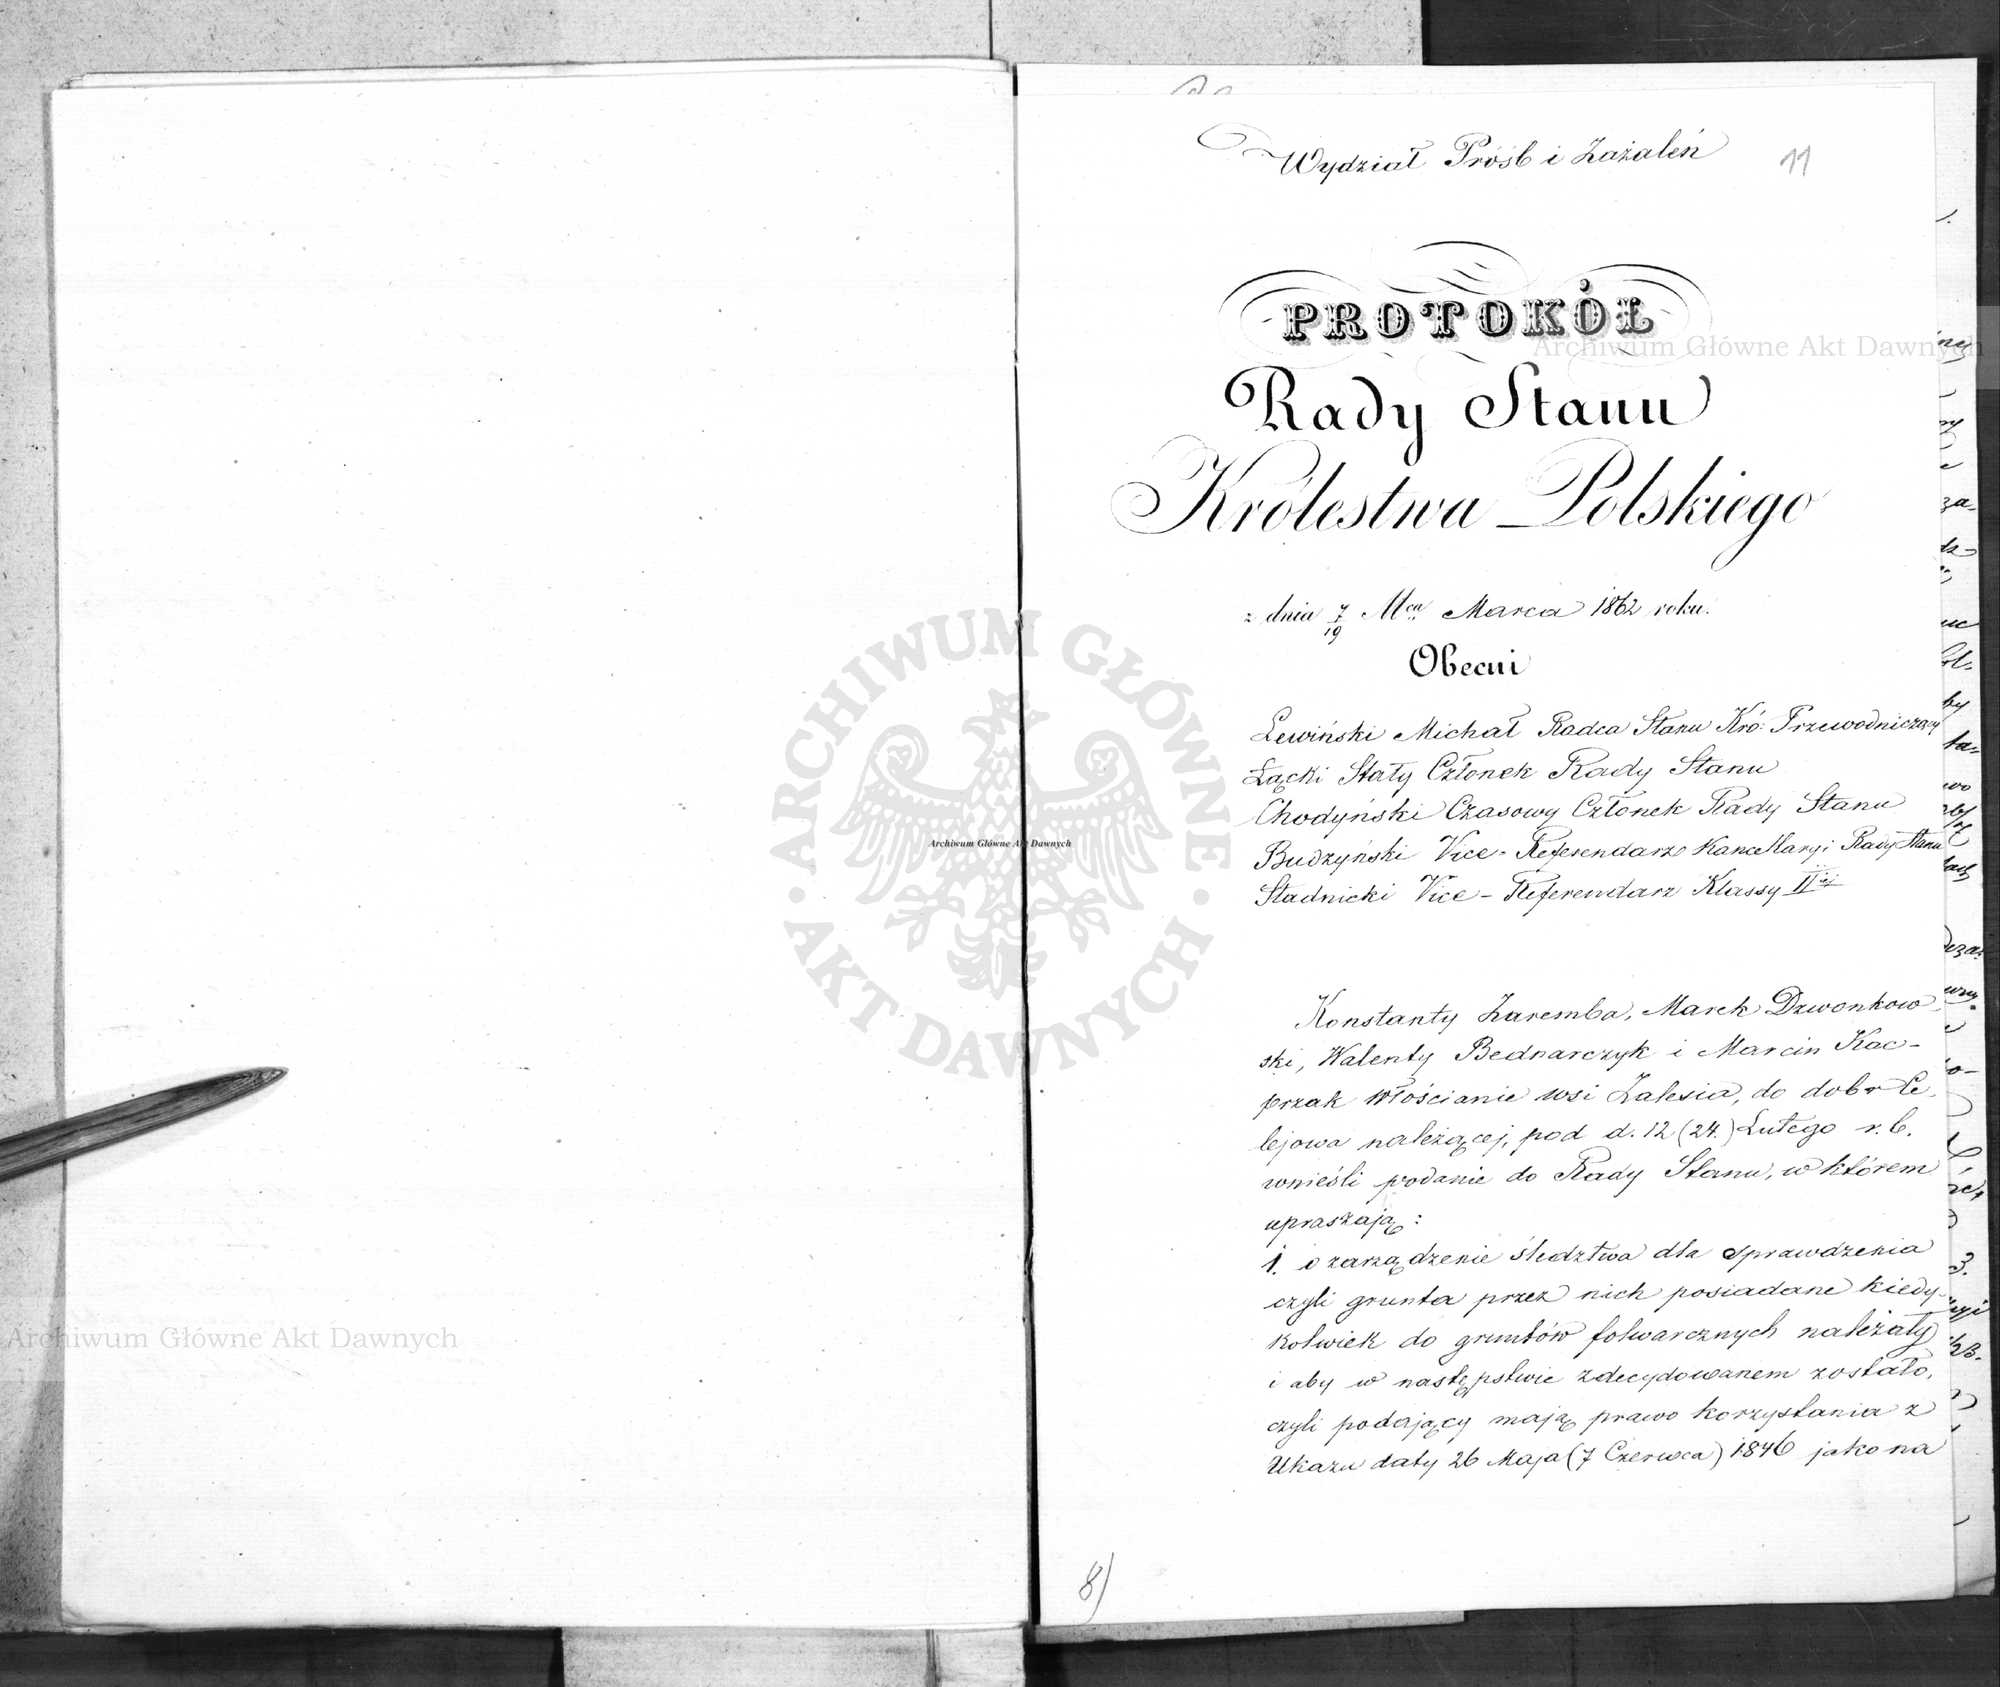 Wydział Próśb i Zażaleń
11
PROTOKÓŁ
Rady Stanu
Królestwa Polskiego
z dnia 7/19 Mca Marca 1862 roku.
Obecni
Lewiński Michał Radca Stanu Kró: Przewodniczący
Łącki Stały Członek Rady Stanu
Chodyński Czasowy Członek Rady Stanu
Budzyński Vice-Referendarz Kancellaryi Rady Stanu
Stadnicki Vice-Referendarz Klassy IIiej
Konstanty Zaremba, Marek Dzwonkow-
ski, Walenty Bednarczyk i Marcin Kac-
przak włościanie wsi Zalesia, do dobr Le-
lejowa należącej, pod d. 12 (24.) Lutego r. b.
wnieśli podanie do Rady Stanu, w którem
upraszają:
1. o zarządzenie śledztwa dla sprawdzenia
czyli grunta przez nich posiadane kiedy-
kolwiek do gruntów folwarcznych należały
i aby w następstwie zdecydowanem zostało,
czyli podający mają prawo korzystania z
Ukazu daty 26 Maja (7 Czerwca) 1846 jako na
8)
Archiwum Główne Akt Dawnych
ARCHIWUM GŁÓWNE
AKT DAWNYCH
Archiwum Główne Akt Dawnych
Archiwum Główne Akt Dawnych